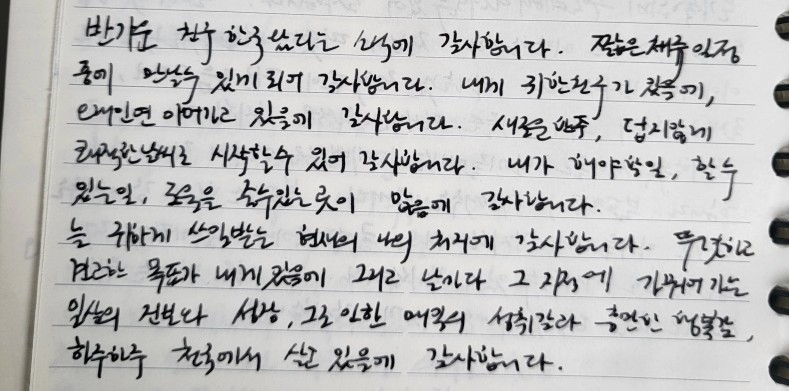 반가운 친구 한국 왔다는 소식에 감사합니다. 짧은 체류 일정
중에 만날수 있게 되어 감사합니다. 내게 귀한 친구가 있음에,
오래 인연 이어가고 있음에 감사합니다. 새로운 한주, 덥지않게
쾌적한 날씨로 시작할수 있어 감사합니다. 내가 해야 할일, 할수
있는일, 도움을 줄수있는 곳이 많음에 감사합니다.
늘 귀하게 쓰임받는 현재의 나의 처지에 감사합니다. 뚜렷하고
견고한 목표가 내게 있음에 그리고 날마다 그 지점에 가까워 가는
일상의 진보와 성장, 그로 인한 매일의 성취감과 충만한 행복감,
하루하루 천국에서 살고 있음에 감사합니다.